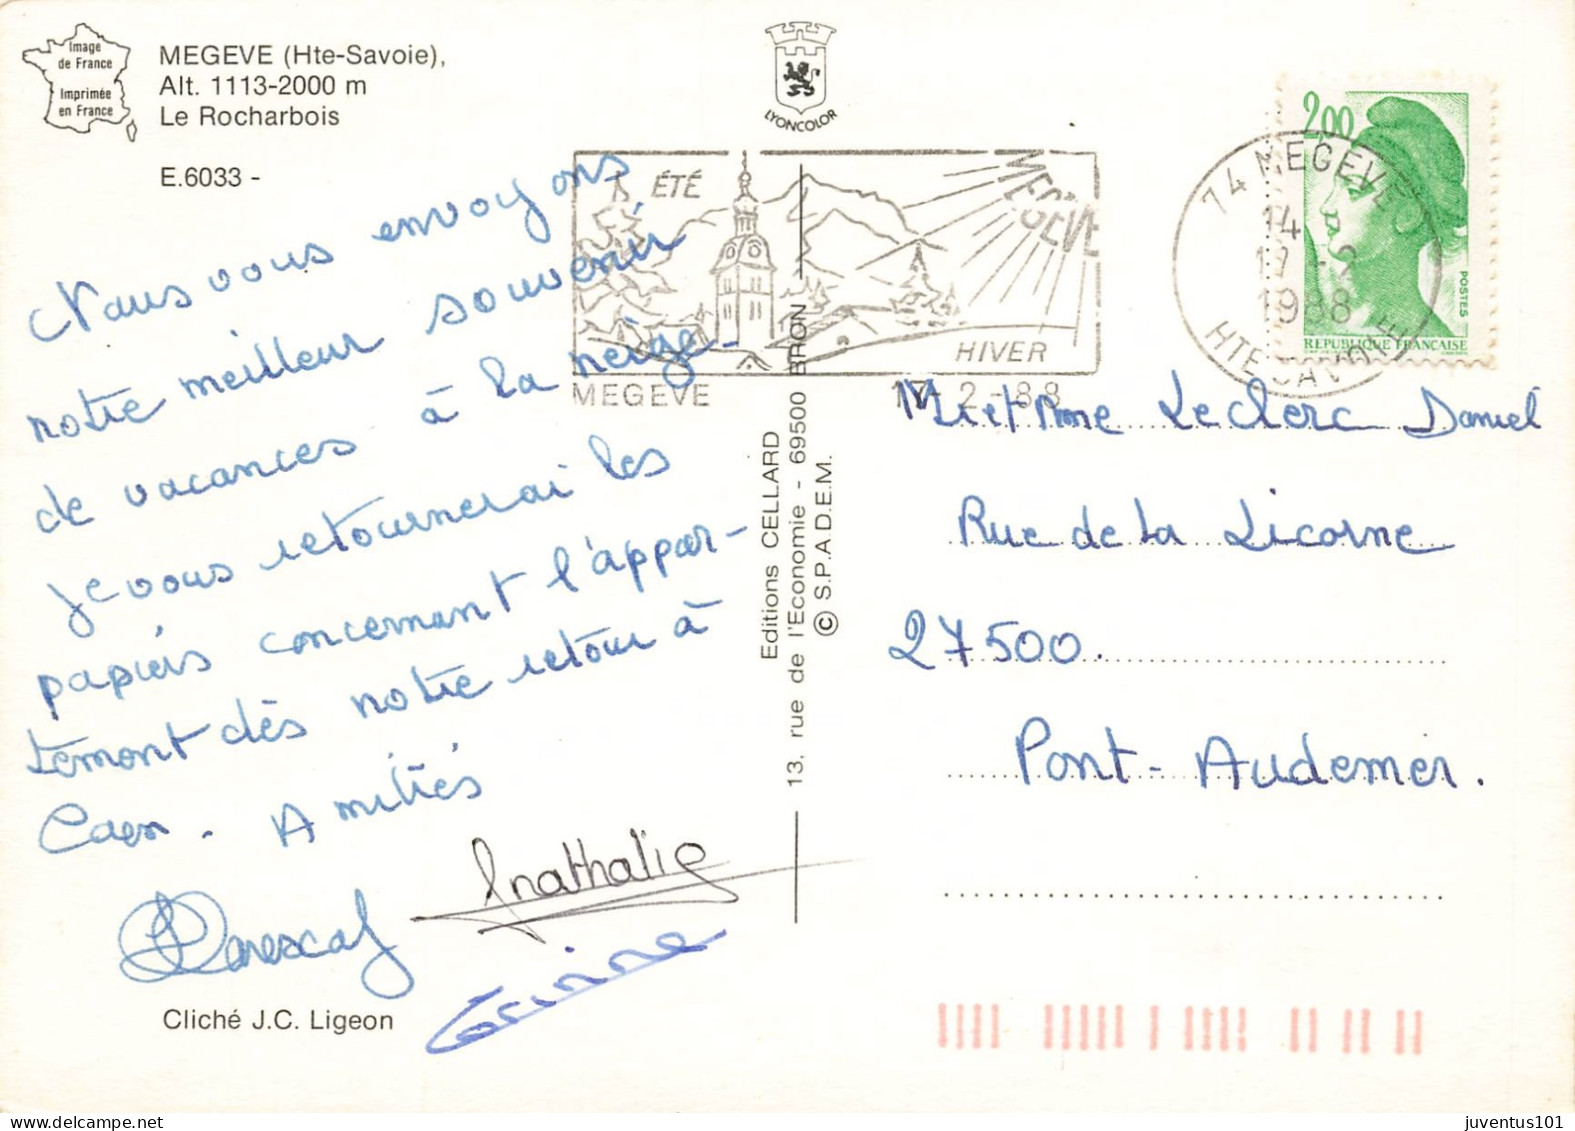 Image
de France
Imprimée
en France
MEGEVE (Hte-Savoie),
Alt. 1113-2000 m
Le Rocharbois
E.6033 -
LYONCOLOR
ÉTÉ
MEGÈVE
HIVER
MEGEVE
17-2-88
74 MEGEVE
14 H
17 -2
1988
HTE SAVOIE
2,00
POSTES
REPUBLIQUE FRANCAISE
Nous vous envoyons
notre meilleur souvenir
de vacances à la neige.
je vous retournerai les
papiers concernant l'appar-
tement dès notre retour à
Caen. Amitiés
nathalie
Corinne
Cliché J.C. Ligeon
Editions CELLARD
13, rue de l'Economie - 69500 BRON
© S.P.A.D.E.M.
Mr et Mme Leclerc Daniel
Rue de la Licorne
27500.
Pont-Audemer.
juventus101